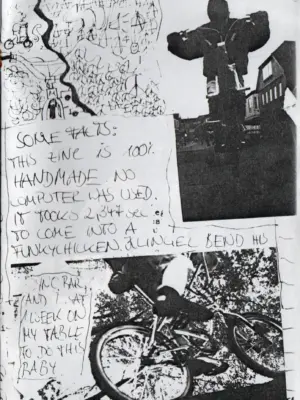 SOME FACTS:
THIS ZINE IS 100%
HANDMADE NO
COMPUTER WAS USED.
IT TOOKS 2,347 sec
TO COME INTO A
FUNKYCHICKEN BEND
AND I
WEEK ON
MY TABLE
TO DO THIS
BABY